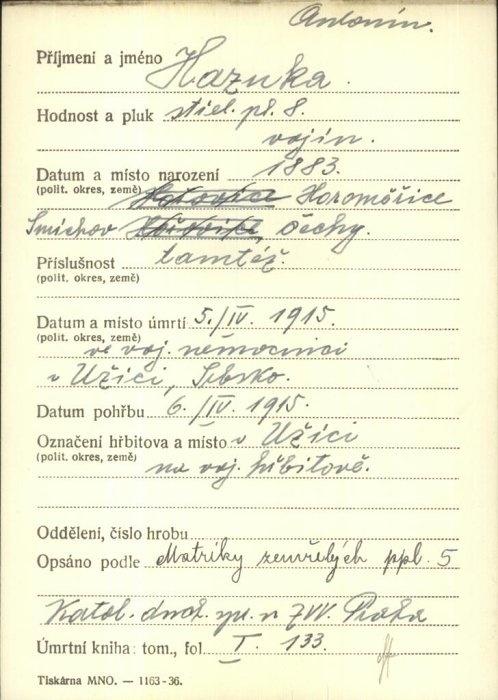 Antonín.
Příjmení a jméno Hazuka.
Hodnost a pluk střel. pl. 8.
vojín.
Datum a místo narození 1883.
(polit. okres, země) Horoměřice
Smíchov Čechy.
Příslušnost tamtéž.
(polit. okres, země)
Datum a místo úmrtí 5./IV. 1915.
(polit. okres, země) ve voj. nemocnici
v Užici, Srbsko.
Datum pohřbu 6./IV. 1915.
Označení hřbitova a místo v Užici
(polit. okres, země) na voj. hřbitově.
Oddělení, číslo hrobu
Opsáno podle Matriky zemřelých ppl. 5
Katol. duch. spr. n ZVV. Praha
Úmrtní kniha: tom., fol I. 133.
Tiskárna MNO. — 1163-36.